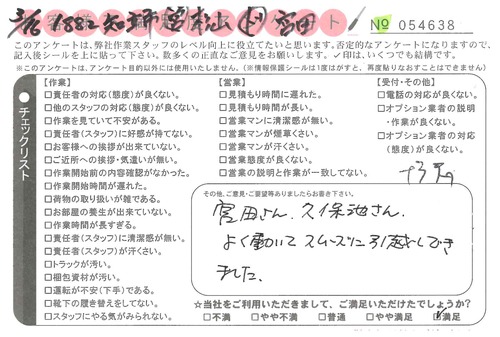 № 054638
このアンケートは、弊社作業スタッフのレベル向上に役立てたいと思います。否定的なアンケートになりますので、
記入後シールを上に貼って下さい。数多くの正直なご意見をお願いします。✓印は、いくつでも結構です。
※このアンケートは、アンケート目的以外には使用いたしません。(※情報保護シールは1度がはすと、再度貼りなおすことはできません)
チェックリスト
【作業】
□責任者の対応(態度)が良くない。
□他のスタッフの対応(態度)が良くない。
□作業を見ていて不安がある。
□責任者(スタッフ)に好感が持てない。
□お客様への挨拶が出来ていない。
□ご近所への挨拶・気遣いが無い。
□作業開始前の内容確認がなかった。
□作業開始時間が遅れた。
□荷物の取り扱いが雑である。
□お部屋の養生が出来ていない。
□作業時間が長すぎる。
□責任者(スタッフ)に清潔感が無い。
□責任者(スタッフ)が汗くさい。
□トラックが汚い。
□梱包資材が汚い。
□運転が不安(下手)である。
□靴下の履き替えをしてない。
□スタッフにやる気がみられない。
【営業】
□見積もり時間に遅れた。
□見積もり時間が長い。
□営業マンに清潔感が無い。
□営業マンが煙草くさい。
□営業マンが汗くさい。
□営業態度が良くない。
□営業の説明と作業が一致してない。
【受付・その他】
□電話の対応が良くない。
□オプション業者の説明
・作業が良くない。
□オプション業者の対応
(態度)が良くない。
その他、ご意見・ご要望等ありましたらお書き下さい。
宮田さん、久保池さん、
よく働いてスムーズに引越しでき
ました。
☆当社をご利用いただきまして、ご満足いただけたでしょうか?
□不満 □やや不満 □普通 □やや満足 ☑満足